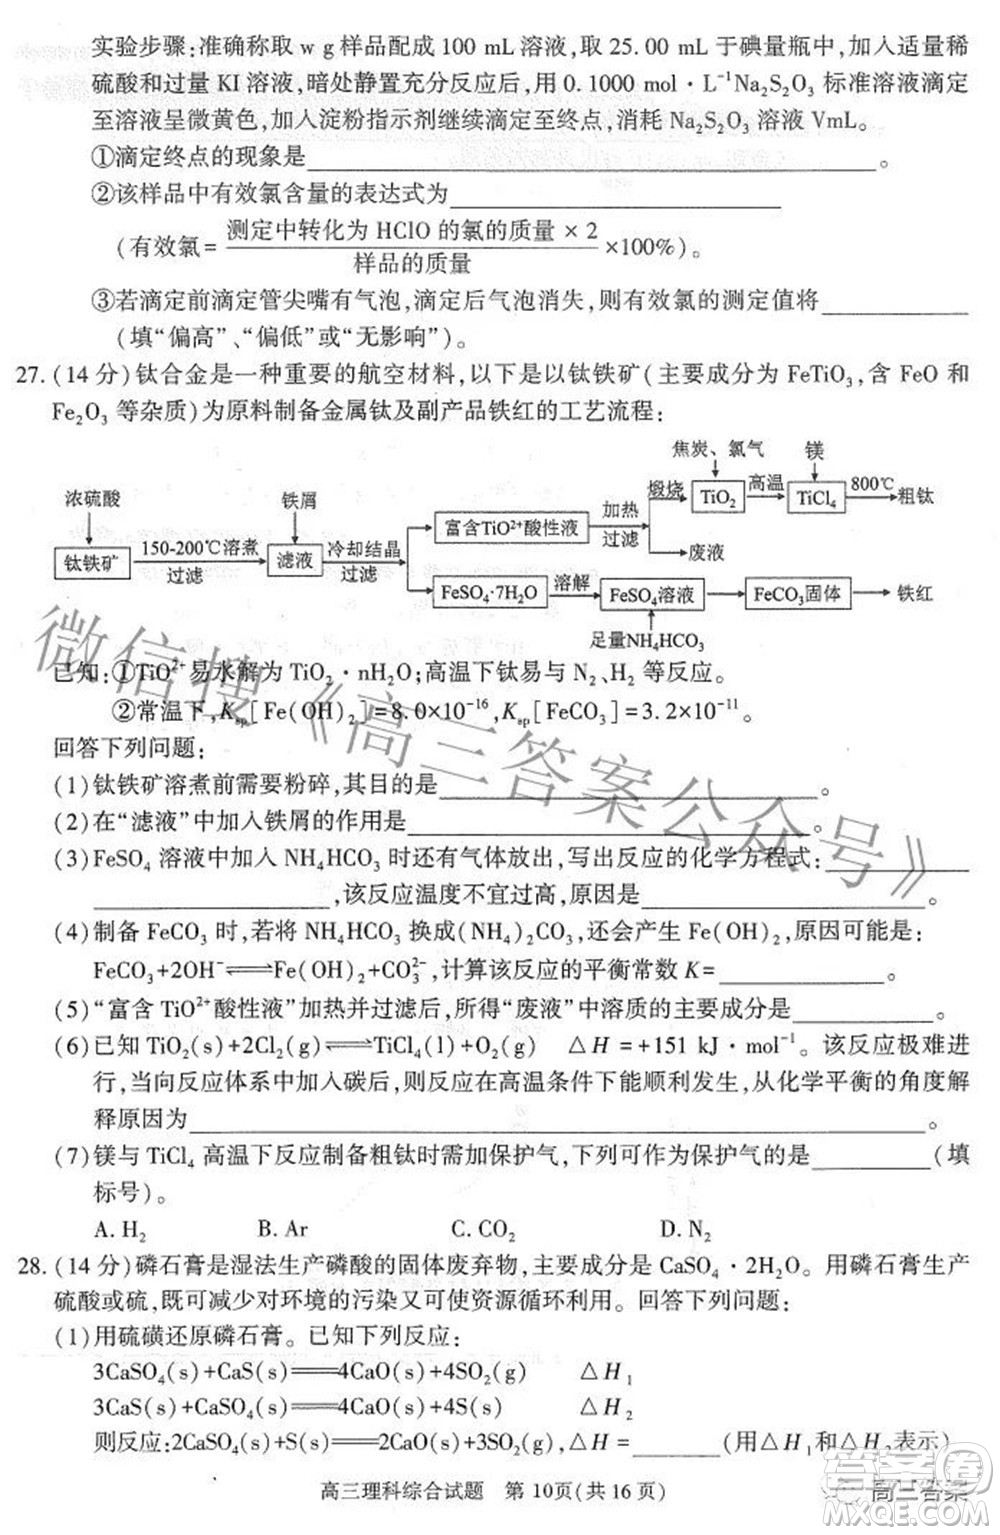 实验步骤:准确称取 w g 样品配成 100 mL 溶液,取 25.00 mL 于碘量瓶中,加入适量稀
硫酸和过量 KI 溶液,暗处静置充分反应后,用 0.1000 mol·L⁻¹Na₂S₂O₃ 标准溶液滴定
至溶液呈微黄色,加入淀粉指示剂继续滴定至终点,消耗 Na₂S₂O₃ 溶液 VmL。
①滴定终点的现象是____________。
②该样品中有效氯含量的表达式为____________
(有效氯=测定中转化为 HClO 的氯的质量×2/样品的质量×100%)。
③若滴定前滴定管尖嘴有气泡,滴定后气泡消失,则有效氯的测定值将________
(填“偏高”、“偏低”或“无影响”)。
27.(14 分)钛合金是一种重要的航空材料,以下是以钛铁矿(主要成分为 FeTiO₃,含 FeO 和
Fe₂O₃ 等杂质)为原料制备金属钛及副产品铁红的工艺流程:
焦炭、氯气 镁
浓硫酸 铁屑 煅烧 TiO₂ 高温 TiCl₄ 800℃ 粗钛
富含TiO²⁺酸性液 加热 过滤 废液
钛铁矿 150-200℃溶煮 过滤 滤液 冷却结晶 过滤
FeSO₄·7H₂O 溶解 FeSO₄溶液 FeCO₃固体 铁红
足量NH₄HCO₃
已知:①TiO²⁺易水解为 TiO₂·nH₂O;高温下钛易与 N₂、H₂ 等反应。
②常温下,Ksp[Fe(OH)₂]=8.0×10⁻¹⁶,Ksp[FeCO₃]=3.2×10⁻¹¹。
回答下列问题:
(1)钛铁矿溶煮前需要粉碎,其目的是____________。
(2)在“滤液”中加入铁屑的作用是____________。
(3)FeSO₄ 溶液中加入 NH₄HCO₃ 时还有气体放出,写出反应的化学方程式:________
________,该反应温度不宜过高,原因是____________。
(4)制备 FeCO₃ 时,若将 NH₄HCO₃ 换成(NH₄)₂CO₃,还会产生 Fe(OH)₂,原因可能是:
FeCO₃+2OH⁻⇌Fe(OH)₂+CO₃²⁻,计算该反应的平衡常数 K=________。
(5)“富含 TiO²⁺酸性液”加热并过滤后,所得“废液”中溶质的主要成分是________。
(6)已知 TiO₂(s)+2Cl₂(g)⇌TiCl₄(l)+O₂(g) △H=+151 kJ·mol⁻¹。该反应极难进
行,当向反应体系中加入碳后,则反应在高温条件下能顺利发生,从化学平衡的角度解
释原因为____________。
(7)镁与 TiCl₄ 高温下反应制备粗钛时需加保护气,下列可作为保护气的是________(填
标号)。
A. H₂ B. Ar C. CO₂ D. N₂
28.(14 分)磷石膏是湿法生产磷酸的固体废弃物,主要成分是 CaSO₄·2H₂O。用磷石膏生产
硫酸或硫,既可减少对环境的污染又可使资源循环利用。回答下列问题:
(1)用硫磺还原磷石膏。已知下列反应:
3CaSO₄(s)+CaS(s)══4CaO(s)+4SO₂(g) △H₁
3CaS(s)+CaSO₄(s)══4CaO(s)+4S(s) △H₂
则反应:2CaSO₄(s)+S(s)══2CaO(s)+3SO₂(g),△H=______(用△H₁和△H₂表示)
高三理科综合试题 第 10页(共 16 页)
微信搜《高三答案公众号》
答案圈
高三答案